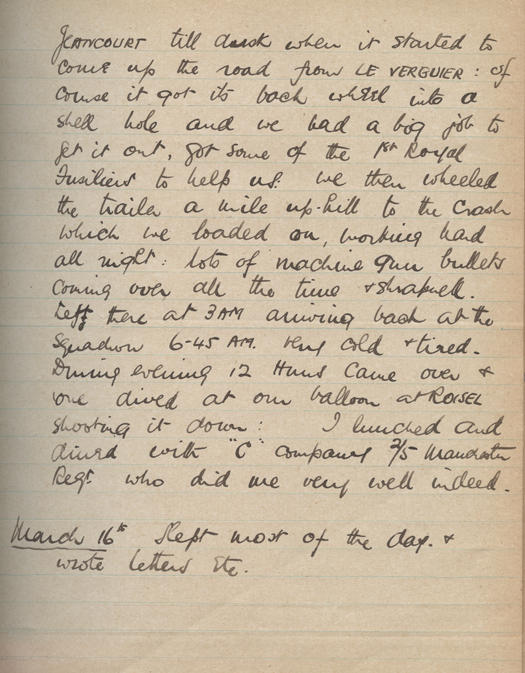 JEANCOURT till dusk when it started to
come up the road from LE VERGUIER : of
course it got its back wheel into a
shell hole and we had a big job to
get it out, got some of the 1st Royal
Fusiliers to help us. we then wheeled
the trailer a mile up-hill to the crash
which we loaded on, working hard
all night : lots of machine gun bullets
coming over all the time & shrapnell.
Left there at 3 AM arriving back at the
Squadron 6-45 AM. very cold & tired.
During evening 12 Huns came over &
one dived at our balloon at ROISEL
shooting it down : I lunched and
dined with "C" company 2/5 Manchester
Regt who did me very well indeed.
March 16th Slept most of the day. &
wrote letters etc.